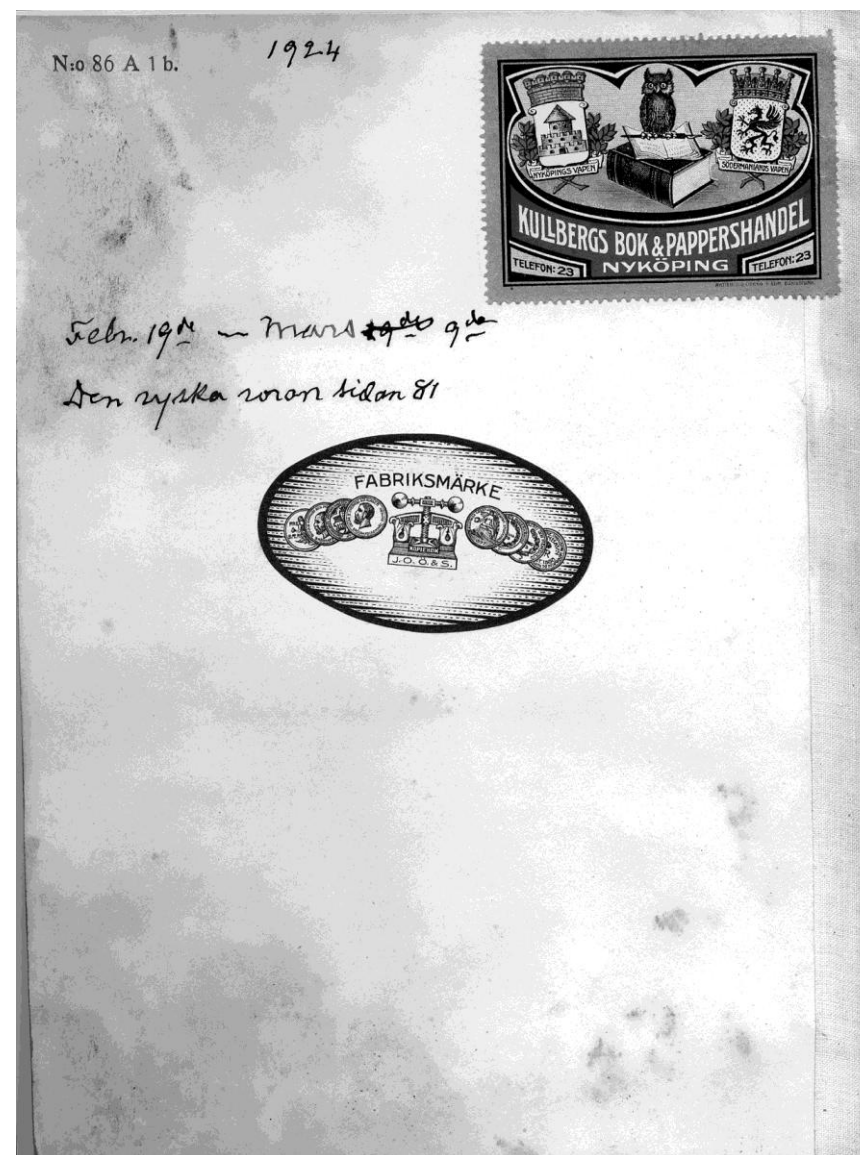 N:o 86 A 1 b.
1924
NYKÖPINGS VAPEN
SÖDERMANLANDS VAPEN
KULLBERGS BOK & PAPPERSHANDEL
TELEFON: 23 NYKÖPING TELEFON: 23
Febr. 19de — Mars 19de 9de
Den ryska roran sidan 81
FABRIKSMÄRKE
J. O. Ö. & S.